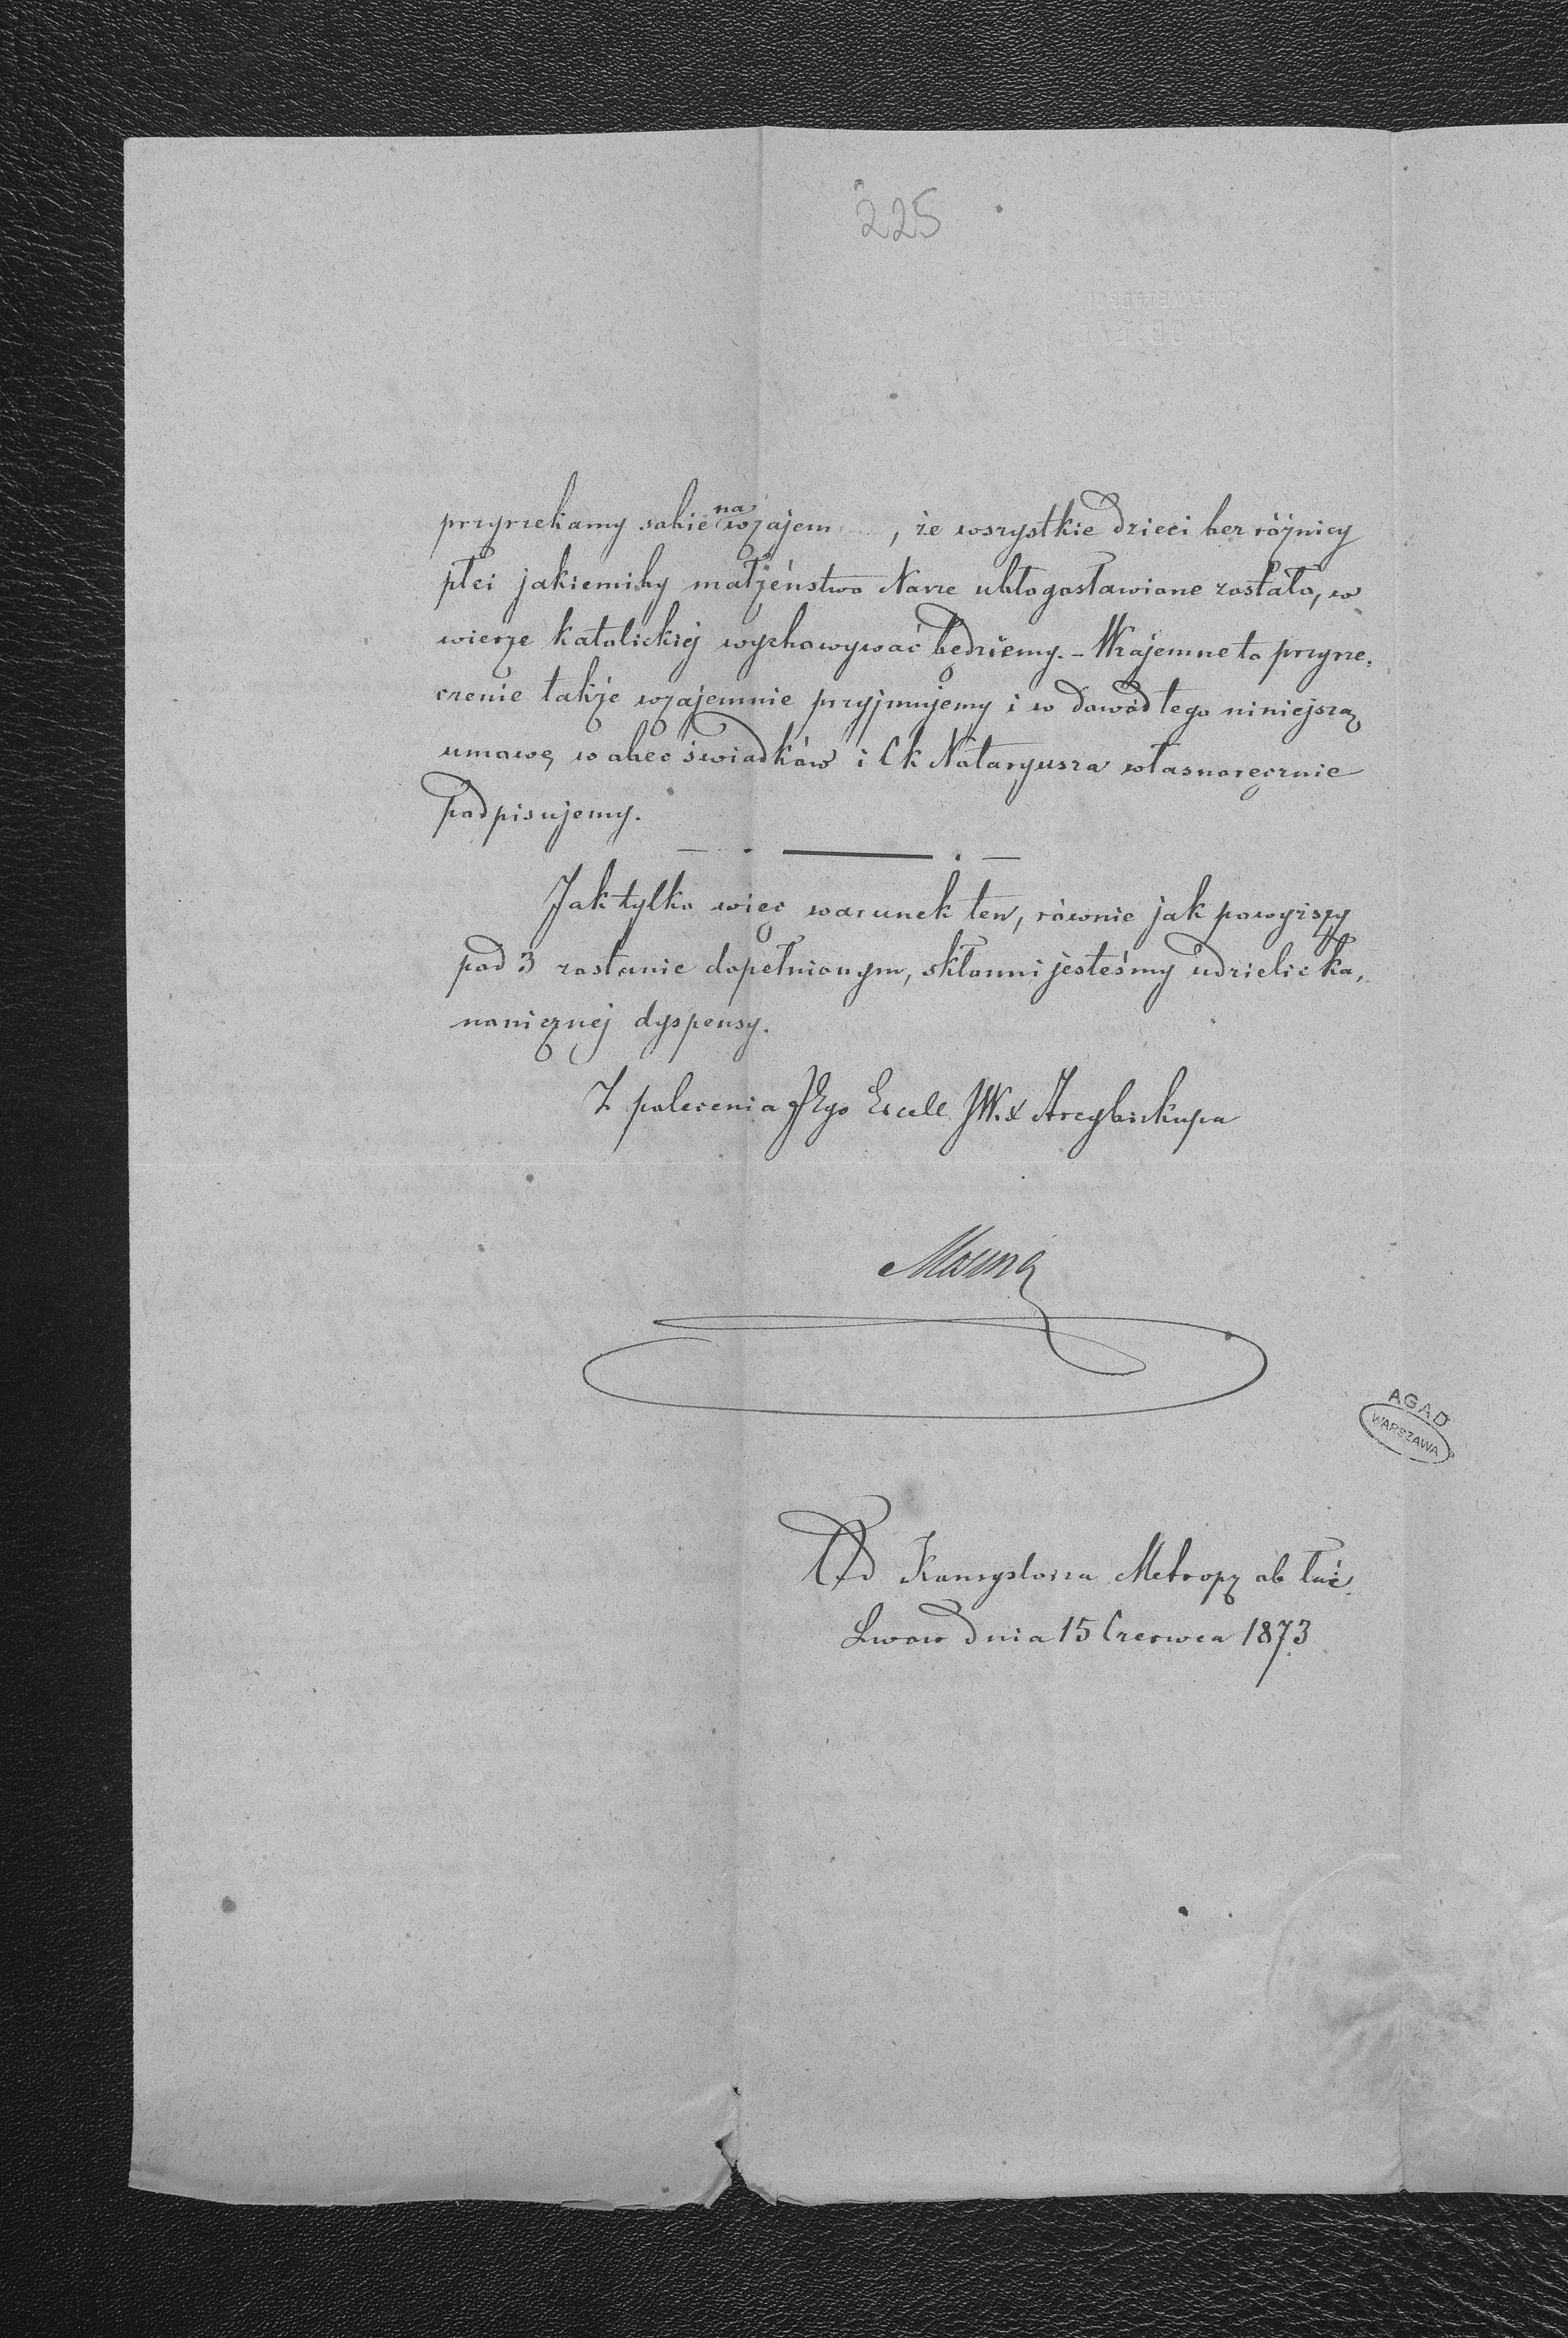 225
przyrzekamy sobie nawzajem, że wszystkie dzieci bez różnicy
płci jakiemiby małżeństwo Nasze ubłogosławione zostało, w
wierze katolickiej wychowywać będziemy. – Wzajemne to przyrze,
czenie także wzajemnie przyjmujemy i w dowód tego niniejszą
umowę wobec świadków i Ck Notaryusza własnoręcznie
podpisujemy.
Jak tylko więc warunek ten, równie jak powyższy
pod 3 zostanie dopełnionym, skłonni jesteśmy udzielić ka,
nonicznej dyspensy.
Z polecenia JEgo Excell JW. X Arcybiskupa
Od Konsystorza Metrop ob łać.
Lwow dnia 15 Czerwca 1873
AGAD
WARSZAWA